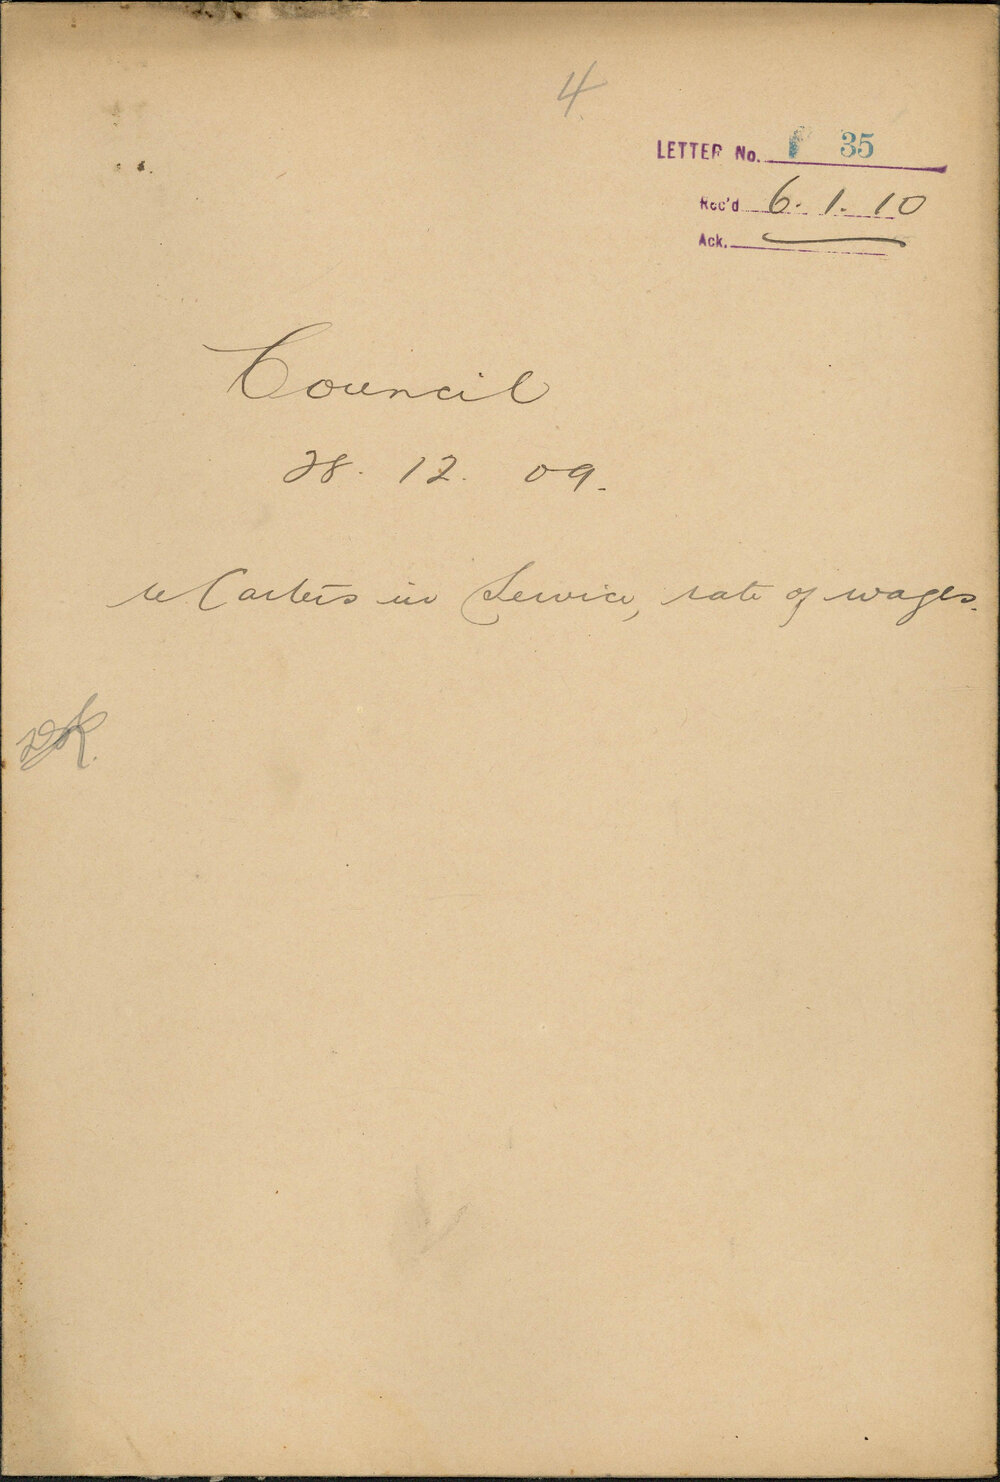 4
LETTER No. 35
Rec'd 6.1.10
Ack.
Council
28.12.09.
re Carters in Service, rate of wages.